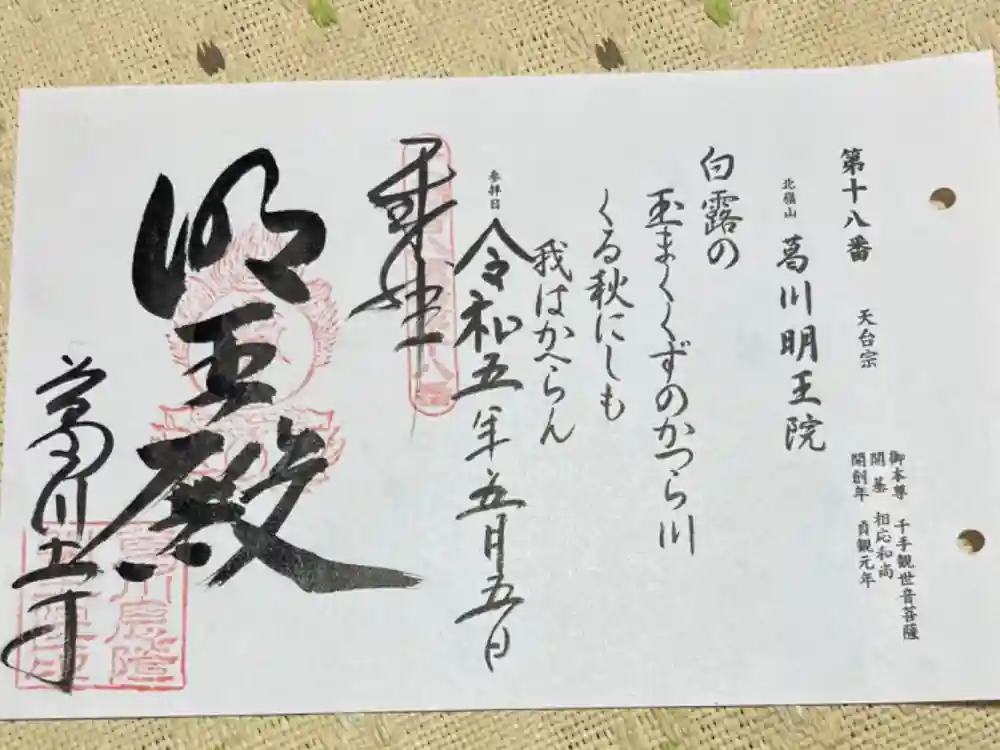 第十八番　天台宗
北嶺山　葛川明王院
御本尊　千手観世音菩薩
開基　相応和尚
開創年　貞観元年
白露の
玉まくくずのかつら川
くる秋にしも
我はかへらん
参拝日　令和五年五月五日
奉拝
明王殿
葛川